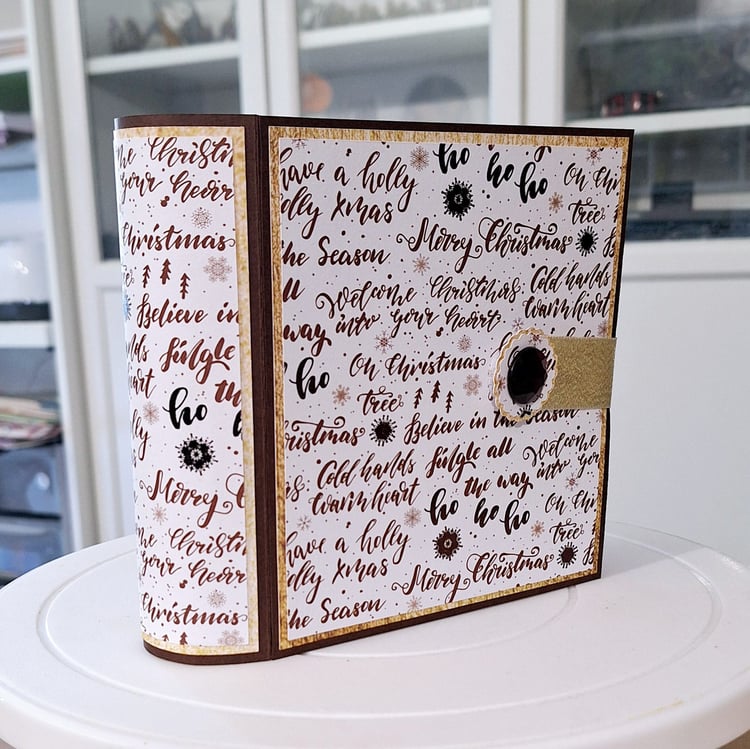 Christm
your hearr
Christmas
tree
Believe in
Jingle
the
ho
Merry
Christm
your hearr
Christmas
have a holly
dly Xmas
ho ho ho
Oh Chr
tree
the Season
Merry Christmas
Welcome Christmas
into your hearrt
Cold hands
Warm heart
way
ho
Oh Christmas
tree
Christmas
Believe in the Season
Cold hands
Warm heart
Jingle all
the way
Welcome
into yor
ho ho ho
Oh Chris
tree
have a holly
dly Xmas
Merry Christmas
the Season